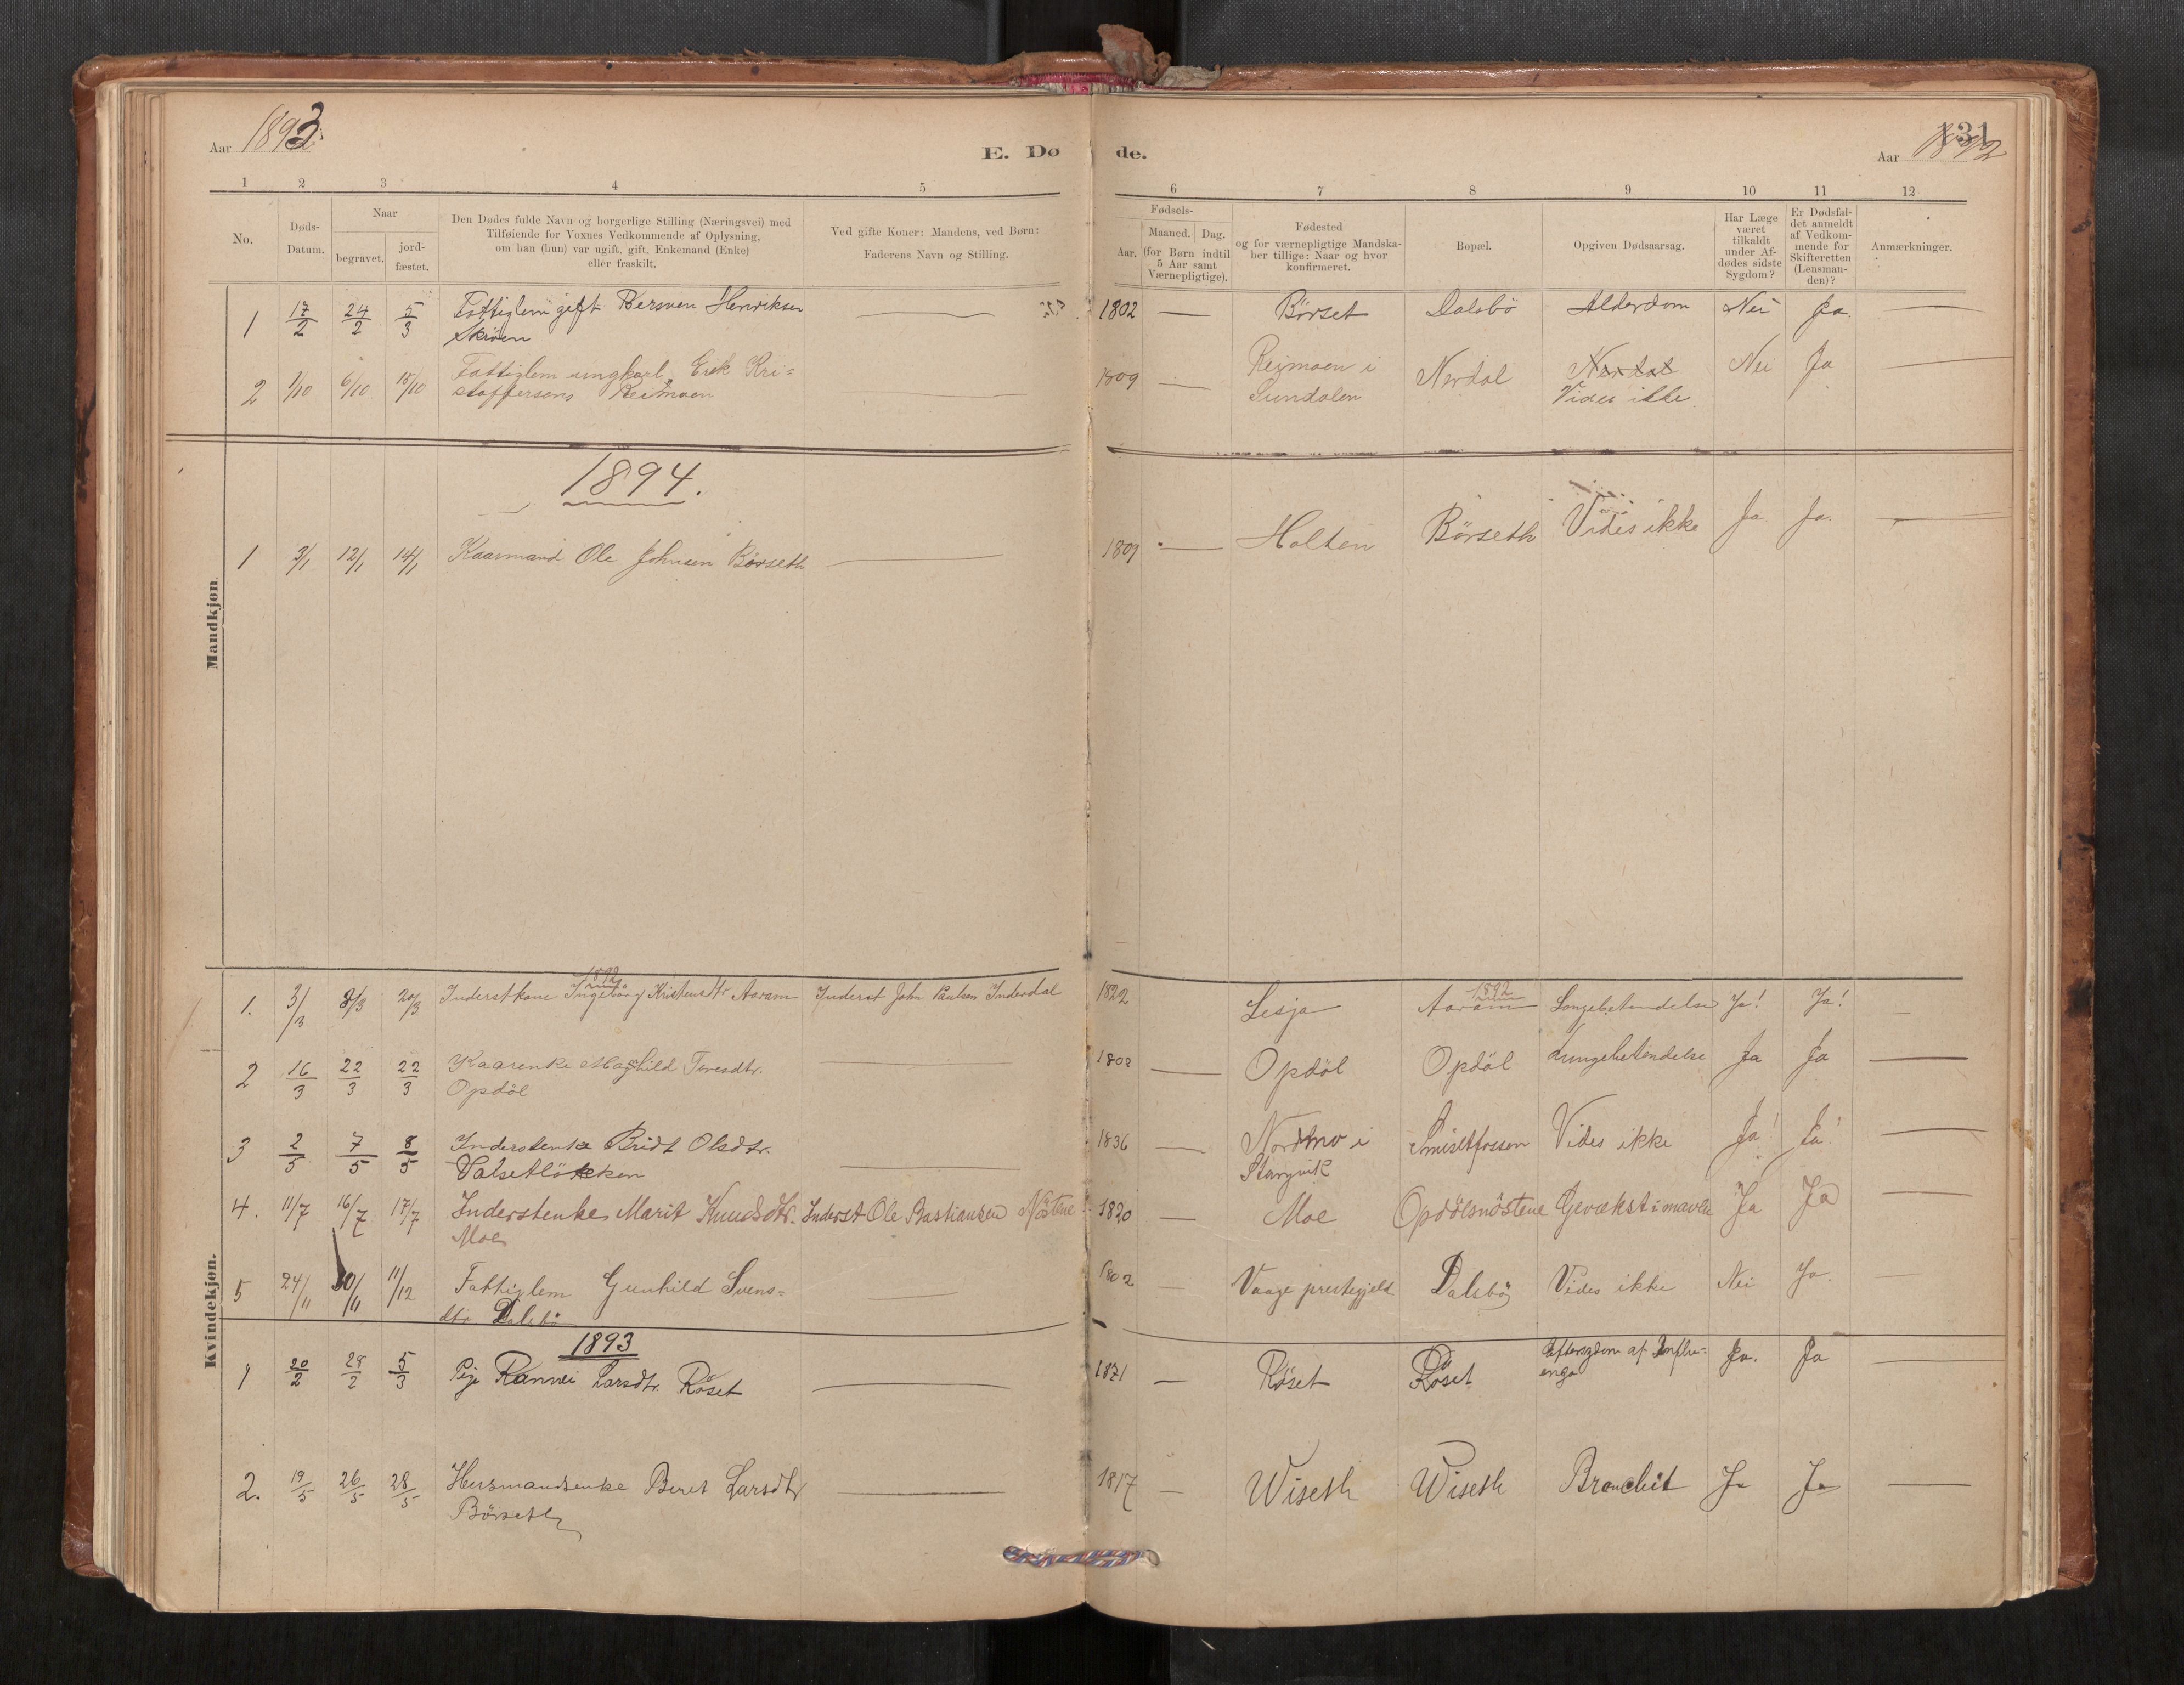 Aar 1893
E. Døde.
131
Aar 1892
1 2 3 4 5 6 7 8 9 10 11 12
No.
Døds-
Datum.
Naar
begravet.
jord-
fæstet.
Den Dødes fulde Navn og borgerlige Stilling (Næringsvei) med
Tilføiende for Voxnes Vedkommende af Oplysning,
om han (hun) var ugift, gift, Enkemand (Enke)
eller fraskilt.
Ved gifte Koner: Mandens, ved Børn:
Faderens Navn og Stilling.
Fødsels-
Aar.
Maaned. Dag.
(for Børn indtil
5 Aar samt
Værnepligtige).
Fødested
og for værnepligtige Mandska-
ber tillige: Naar og hvor
konfirmeret.
Bopæl.
Opgiven Dødsaarsag.
Har Læge
været
tilkaldt
under Af-
dødes sidste
Sygdom?
Er Dødsfal-
det anmeldt
af Vedkom-
mende for
Skifteretten
(Lensman-
den)?
Anmærkninger.
Mandkjøn.
1 17/2 24/2 5/3 Fattiglem gift Bersven Henriksen 1802 — Börset Dalsbö Alderdom Nei Ja. —
Skröen
2 1/10 6/10 15/10 Fattiglem ungkarl Erik Kri= 1809 — Reimoen i Nerdal Nerdal Nei Ja —
stoffersens Reimoen Sundalen Vides ikke
1894.
1 3/1 12/1 14/1 Kaarmand Ole Johnsen Børseth — 1809 — Holten Börseth Vides ikke Ja Ja. —
Kvindekjøn.
1892
1. 3/3 8/3 20/3 Inderstkone Ingeborg Kristensdtr Aaram Inderst John Paulsen Inderdal 1822 Lesja Aaram Lungebetændelse Ja! Ja!
1892
2 16/3 22/3 22/3 Kaarenke Maghild Toresdtr. — 1802 — Opdöl Opdöl Lungebetendelse Ja Ja —
Opdöl
3 2/5 7/5 8/5 Inderstenke Bridt Olsdtr. — 1836 — Nordmo i Smisetfossen Vides ikke Ja! Ja! —
Valsetlökken Stangvik
4. 11/7 16/7 17/7 Inderstenke Marit Knudsdtr. Inderst Ole Bastiansen Nöstene 1820 — Moe Opdölsnöstene Gevækst i maven Ja Ja —
Moe
5 24/11 30/11 11/12 Fattiglem Gunhild Svens= — 1802 — Vaage prestegjeld Dalsbö Vides ikke Nei Ja. —
dtr Dalsbö
1893
1 20/2 28/2 5/3 Pige Rannei Larsdtr. Röset — 1871 — Röset Röset Eftersygdom af Influ= Ja. Ja —
enza
2. 19/5 26/5 28/5 Husmandsenke Beret Larsdtr — 1817 — Wiseth Wiseth Bronchit Ja Ja —
Börseth